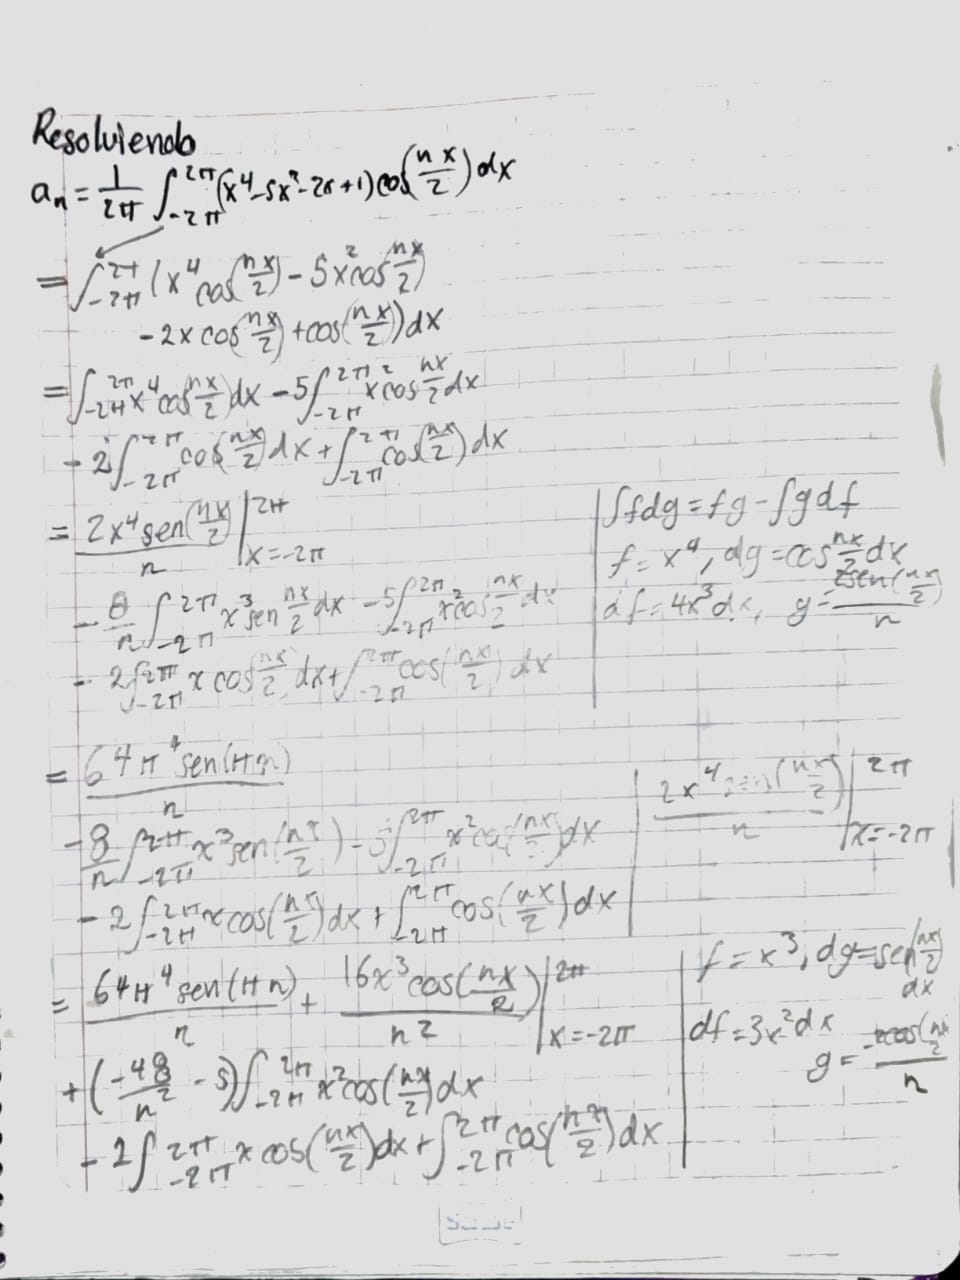 Resolviendo
aₙ = 1/2π ∫_{-2π}^{2π} (x⁴-5x²-2x+1) cos(nx/2) dx
= ∫_{-2π}^{2π} (x⁴ cos(nx/2) - 5x² cos(nx/2)
- 2x cos(nx/2) + cos(nx/2)) dx
= ∫_{-2π}^{2π} x⁴ cos(nx/2) dx - 5∫_{-2π}^{2π} x² cos nx/2 dx
- 2∫_{-2π}^{2π} cos(nx/2) dx + ∫_{-2π}^{2π} cos(nx/2) dx
= 2x⁴ sen(nx/2)/n |_{x=-2π}^{2π}
- 8/n ∫_{-2π}^{2π} x³ sen nx/2 dx - 5∫_{-2π}^{2π} x² cos nx/2 dx
- 2∫_{-2π}^{2π} x cos nx/2 dx + ∫_{-2π}^{2π} cos(nx/2) dx
∫fdg = fg - ∫gdf
f = x⁴, dg = cos nx/2 dx
df = 4x³dx, g = 2sen(nx/2)/n
= 64π⁴ sen(πn)/n
- 8/n ∫_{-2π}^{2π} x³ sen(nx/2) - 5∫_{-2π}^{2π} x² cos(nx/2) dx
- 2∫_{-2π}^{2π} x cos(nx/2) dx + ∫_{-2π}^{2π} cos(nx/2) dx
2x⁴ sen(nx/2)/n |_{x=-2π}^{2π}
= 64π⁴ sen(πn)/n + 16x³ cos(nx/2)/n² |_{x=-2π}^{2π}
+ (-48/n² - 5)∫_{-2π}^{2π} x² cos(nx/2) dx
- 2∫_{-2π}^{2π} x cos(nx/2) dx + ∫_{-2π}^{2π} cos(nx/2) dx
f = x³, dg = sen(nx/2) dx
df = 3x²dx
g = -2cos(nx/2)/n